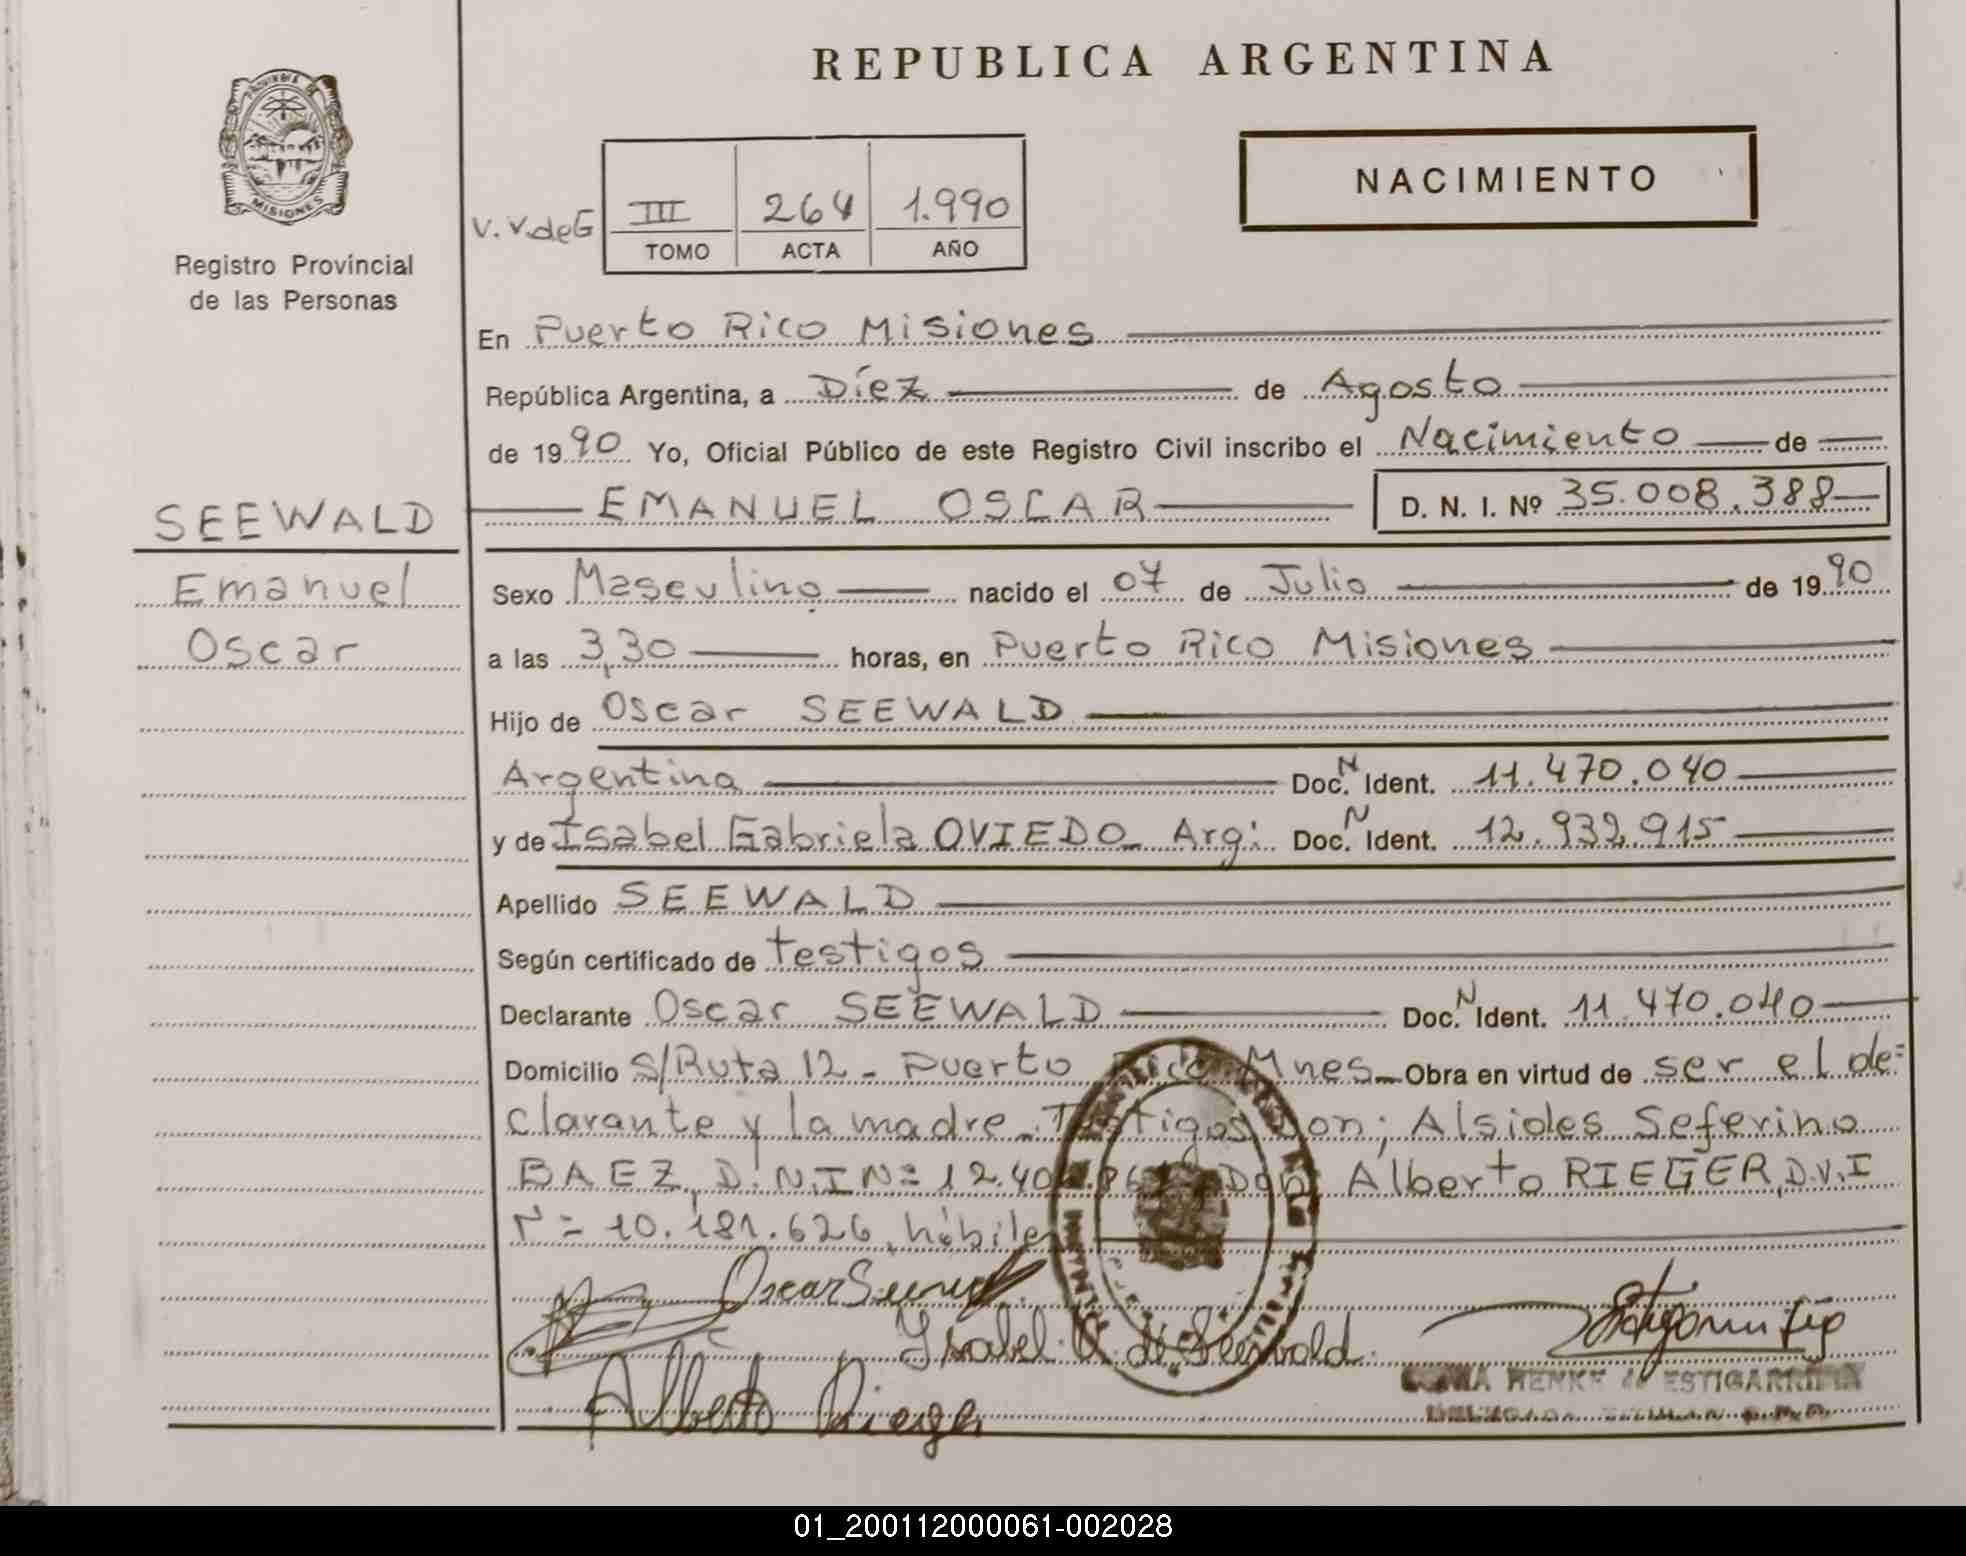 REPUBLICA ARGENTINA
PROVINCIA DE
MISIONES
Registro Provincial
de las Personas
V.V.deG III 264 1.990
TOMO ACTA AÑO
NACIMIENTO
En Puerto Rico Misiones
República Argentina, a Díez de Agosto
de 1990 Yo, Oficial Público de este Registro Civil inscribo el Nacimiento de
SEEWALD EMANUEL OSCAR D. N. I. Nº 35.008.388
Emanuel
Oscar
Sexo Masculino nacido el 07 de Julio de 1990
a las 3,30 horas, en Puerto Rico Misiones
Hijo de Oscar SEEWALD
Argentina Doc. N Ident. 11.470.040
y de Isabel Gabriela OVIEDO Arg: Doc. N Ident. 12.932.915
Apellido SEEWALD
Según certificado de testigos
Declarante Oscar SEEWALD Doc. N Ident. 11.470.040
Domicilio S/Ruta 12 - Puerto Rico Mnes Obra en virtud de ser el de=
clarante y la madre. Testigos Don; Alsides Seferino
BAEZ, D.N.I N= Don Alberto RIEGER, D.N.I
N= 10.181.626, hábile
Oscar
Isabel de Seewald
Alberto Rieger
HENKE de ESTIGARRIBIA
01_200112000061-002028